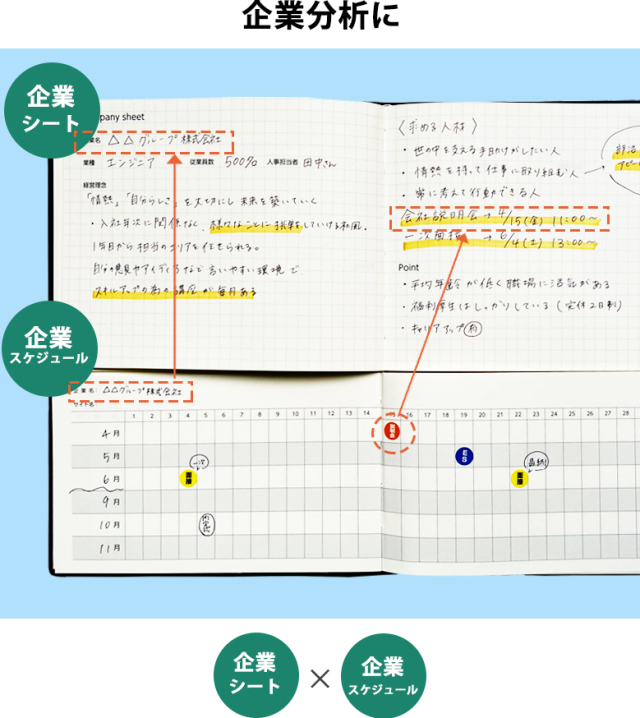 企業分析に
企業
シート
mpany sheet
業名 △△グループ株式会社
業種 エンジニア 従業員数 500名 人事担当者 田中さん
経営理念
「情熱」「自分らしさ」を大切にし未来を築いていく
・入社年次に関係なく、様々なことに挑戦をしていける社風。
1年目から担当のエリアを任せられる。
自分の意見やアイディアなど言いやすい環境で
スキルアップの為の講座が毎月ある
〈求める人材〉
・世の中を支える手助けがしたい人
・情熱を持って仕事に取り組む人
・常に考えて行動できる人
会社説明会→4/15(金) 11:00〜
一次面接 →6/4(土) 13:00〜
Point
・平均年齢が低く職場に活気がある
・福利厚生はしっかりしている(完休2日制)
・キャリアアップ有
企業
スケジュール
企業名: △△グループ株式会社
サイト名:
1 2 3 4 5 6 7 8 9 10 11 12 13 14 15 16 17 18 19 20 21 22 23 24 25 26 27 28
4月
5月 一次 ES 最終
6月 面接 面接
9月
10月 内定式
11月
企業
シート
×
企業
スケジュール